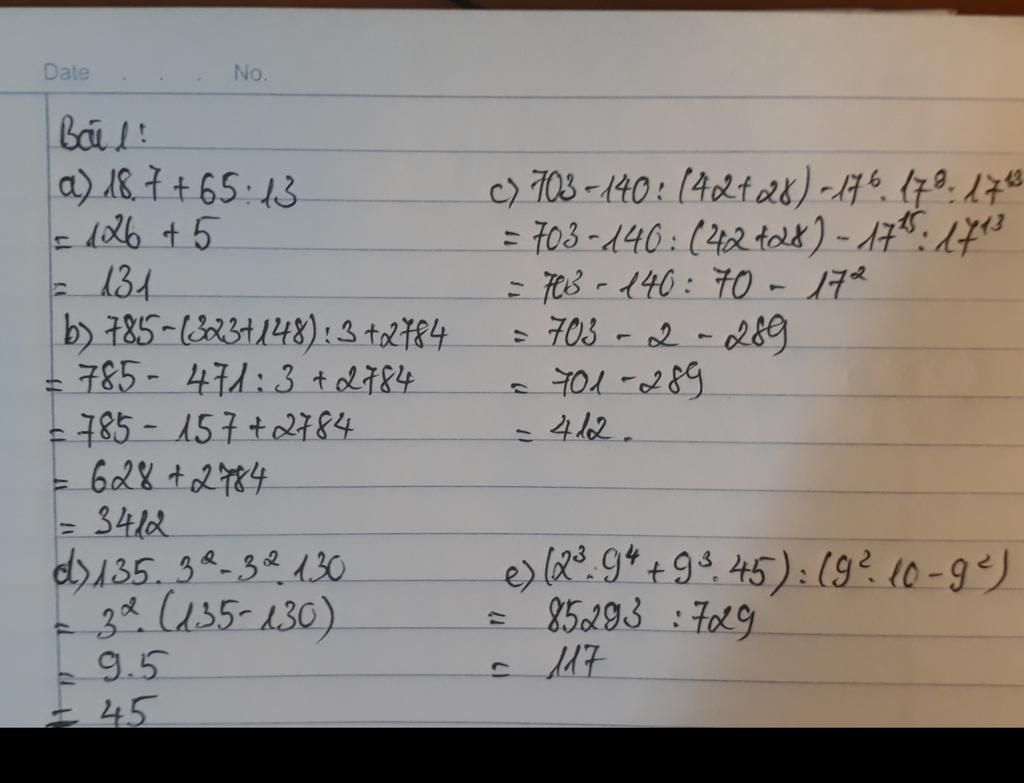 Date . . . No.
Bài 1:
a) 18.7 + 65 : 13
= 126 + 5
= 131
b) 785 - (323 + 148) : 3 + 2784
= 785 - 471 : 3 + 2784
= 785 - 157 + 2784
= 628 + 2784
= 3412
c) 703 - 140 : (42 + 28) - 17⁶ . 17⁹ : 17¹³
= 703 - 140 : (42 + 28) - 17¹⁵ : 17¹³
= 703 - 140 : 70 - 17²
= 703 - 2 - 289
= 701 - 289
= 412.
d) 135 . 3² - 3² . 130
= 3² . (135 - 130)
= 9.5
= 45
e) (2³ . 9⁴ + 9³ . 45) : (9² . 10 - 9²)
= 85293 : 729
= 117